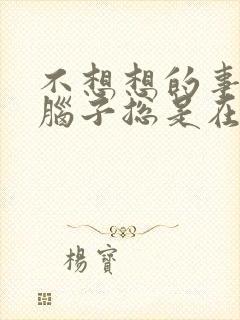 不想想的事
腦子總是在
楊寶